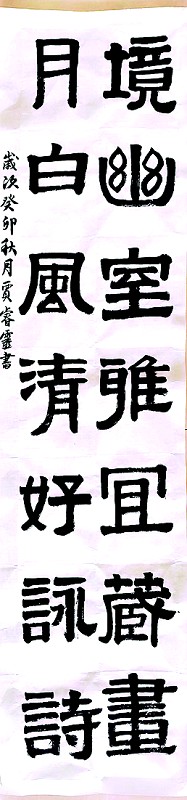 境幽室雅宜藏畫
月白風清好詠詩
歲次癸卯秋月賈睿靈書